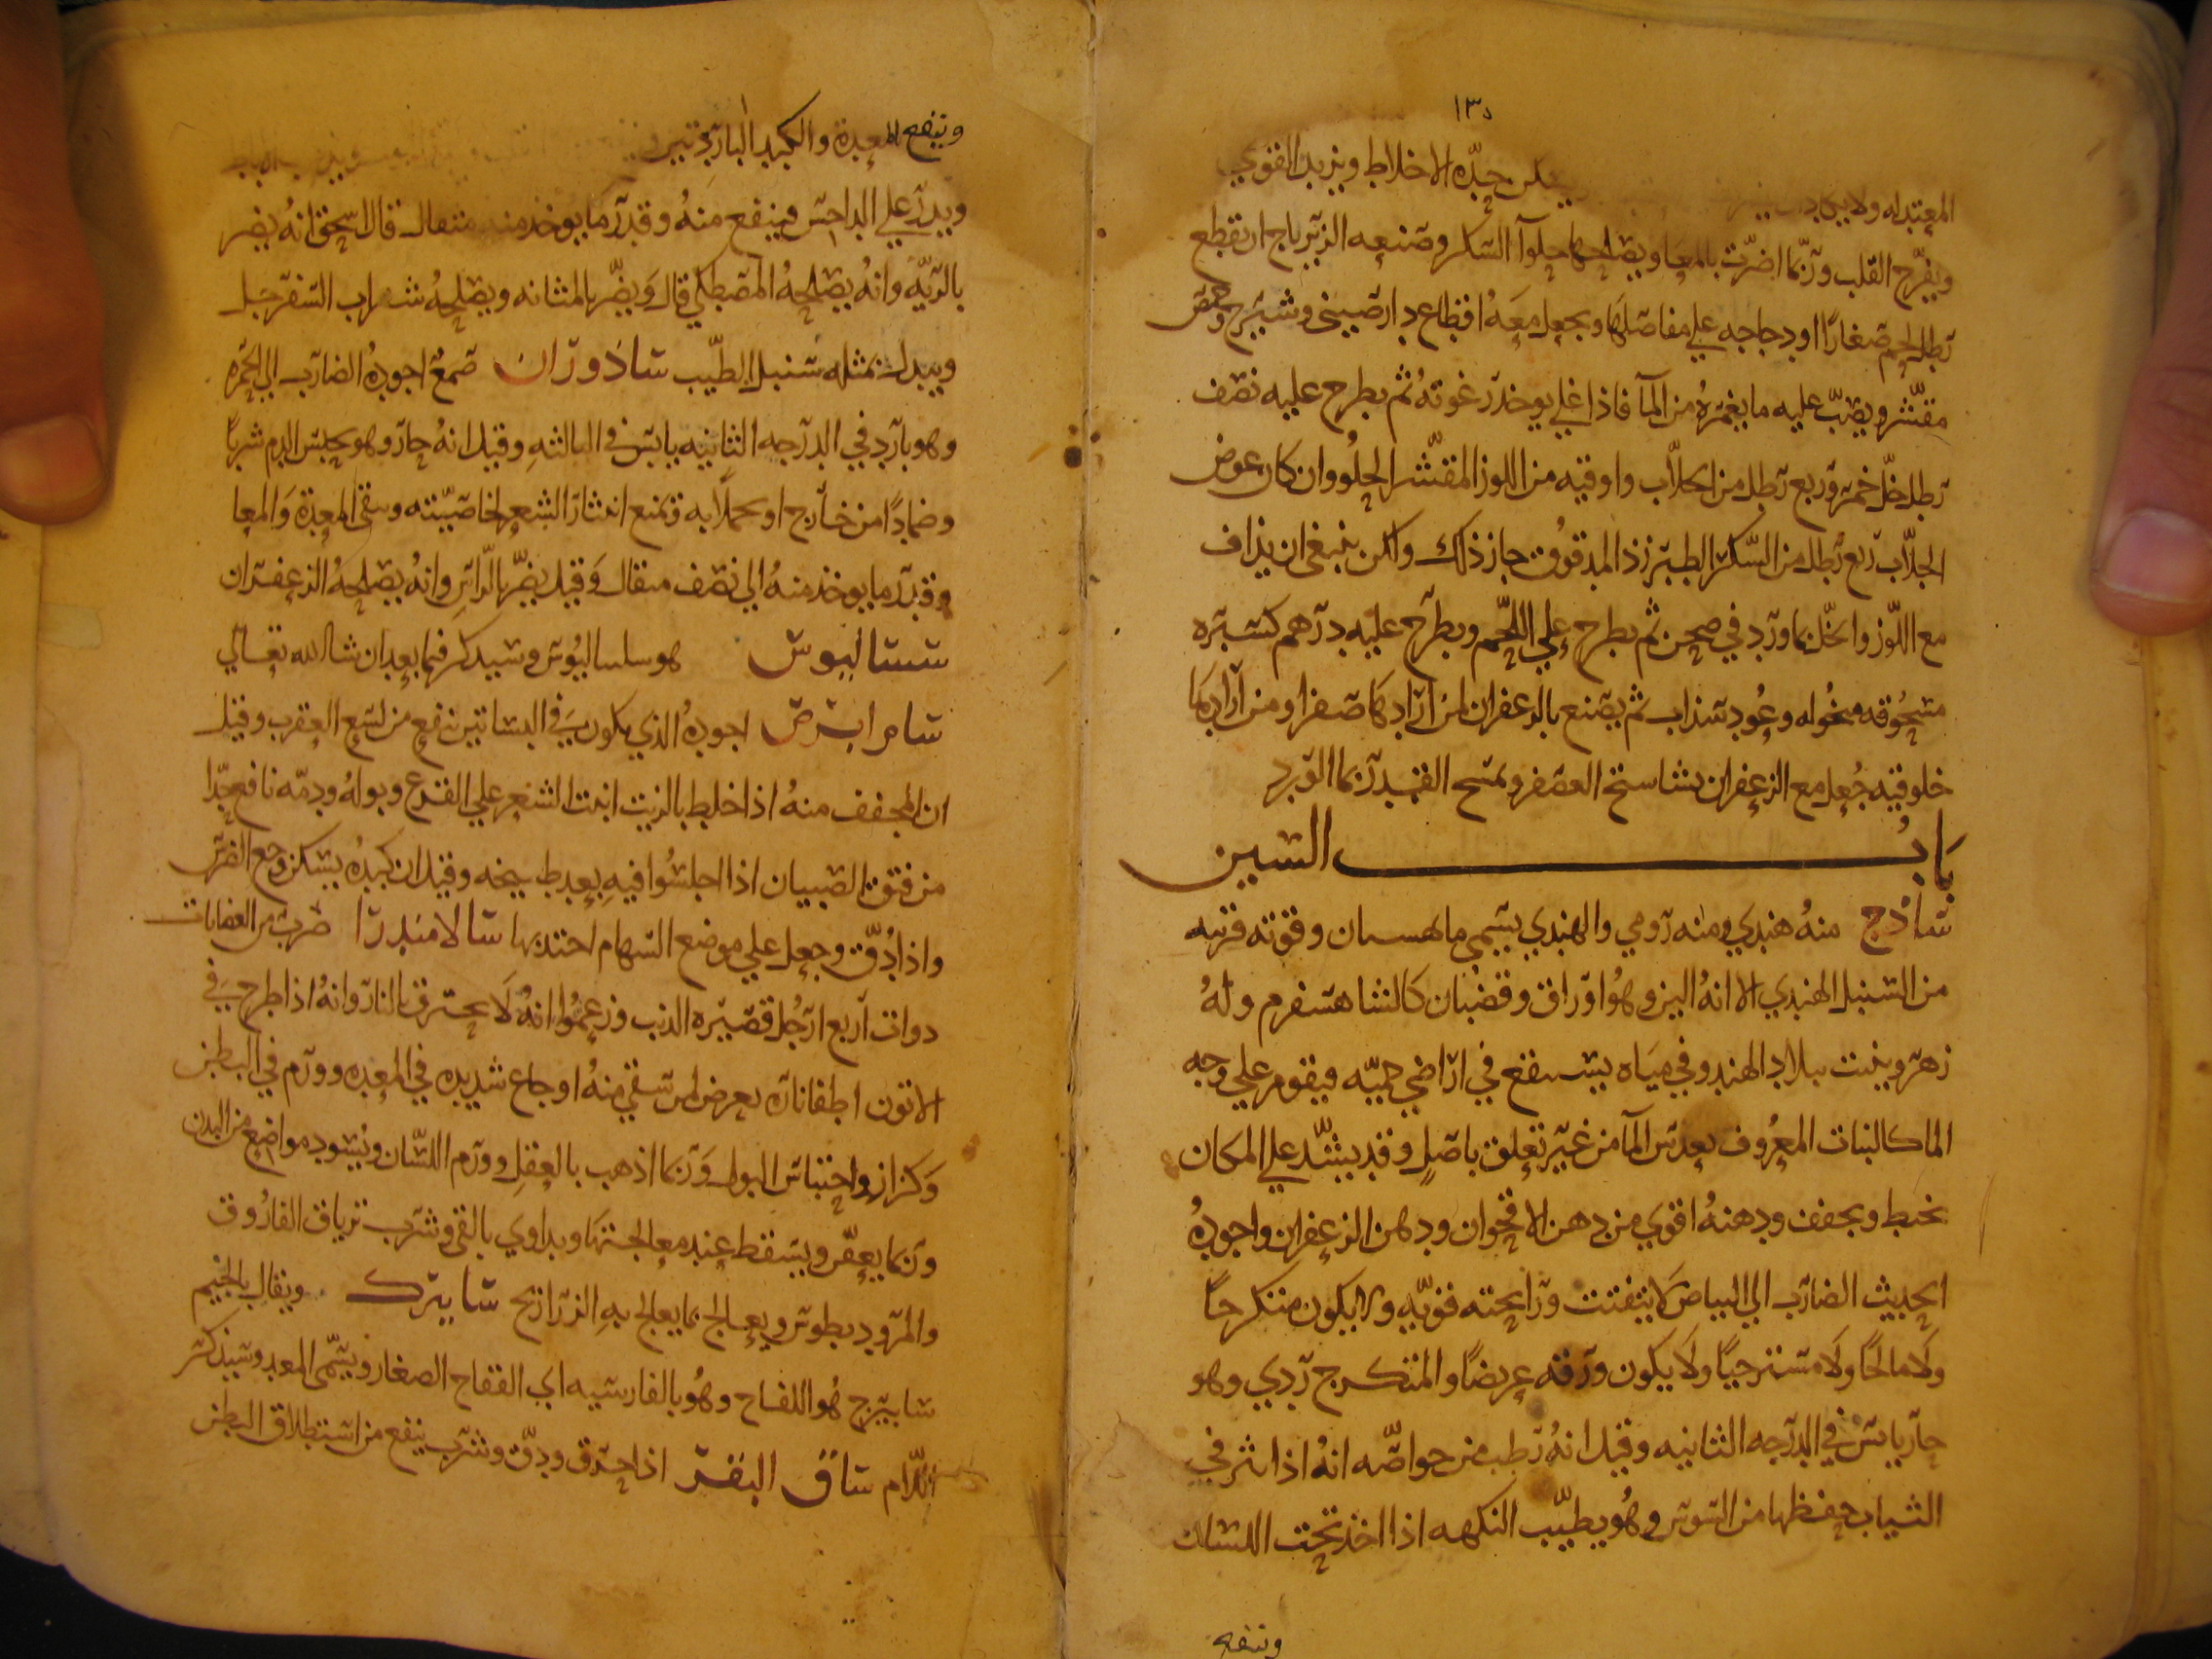 ١٣٥
المعتدله ولا يكاد يسكن حدّه الاخلاط ويزيد القوي
ويفرّح القلب وربّما اضرّت بالمعا ويصلحها حلوآ السكر وصنعه الزيرباج ان يقطع
رطل لحم صغارًا او دجاجه علي مفاصلها ويجعل معَهُ اقطاع دارصيني وشيرج وحمّص
مقشّر ويصبّ عليه ما يغمرهُ من المآ فاذا غلي يوخذ رغوتهُ ثم يطرح عليه نصف
رطل خلّ خمر وربع رطل من الجلاّب واوقيه من اللوز المقشّر الحلُو وان كان عوض
الجلاّب ربع رطل من السّكر الطبرزذ المدقوُق جاز ذلك ولكن ينبغي ان يذاف
مع اللّوز والخلّ بماورد في صحن ثم يطرح علي اللّحم ويطرح عليه درهم كسبره
مسحُوقه منخُوله وعُود سذاب ثم يصنع بالزعفران لمن ارادها صفرا ومن ارادها
خلوقيه جُعل مع الزعفران نشاستج العصفر ويمسح القدر بما الورد
بَابُ السين
سَاذج منهُ هندي ومنه رومي والهندي يسمي وقوته قريبه
من السنبل الهندي الا انهُ الين وهُو اوراق وقضُبان كالشاهسفرم ولهُ
زهر وينبت ببلاد الهند وفي ميَاه يستنقع في اراضي حميّه فيقوم علي وجه
الما كالنبات المعرُوف بعدس المآ من غير تعلق باصلٍ وقد يشّد علي المكان
بخيط ويجفف ودهنهُ اقوي من دهن الاقحوان ودهن الزعفران واجودهُ
الحديث الضارب الي البياض لا يتفتت ورايحته قويّه ولا يكون متكرجًا
ولَا مالحًا ولَا مسترخيًا ولَا يكون ورقه عريضًا والمتكرج ردي وهو
حار يابس في الدرجه الثانيه وقيل انهُ رطب من خواصّه انهُ اذا نثر في
الثياب حفظها من السوس وهُو يطيّب النكهه اذا اخذ تحت اللسان
وينفع
وينفع المعدة والكبد الباردتين
ويدر علي الداحس فينفع منهُ وقدر ما يوخذ منه مثقال قال اسحق انهُ يضر
بالريّه وانهُ يصلحهُ المصطكي قال وَيضّر بالمثانه ويصلحهُ شراب السفرجل
ويبدل بمثله سنبل الطّيب ساذوران صمغٌ اجودهُ الضارب الي الحمره
وهو بارد في الدرجه الثانيه يابس في الثالثهِ وقيل انهُ حار وهو يحبس الدم شربًا
وضمادًا من خارج او بحملًا به ويمنع انتثار الشعر لخاصيّته وينقي المعدة وَالمعا
وقدر ما يوخذ منهُ الي نصف مثقال وَقيل يضّر بالرّاس وانهُ يصلحهُ الزعفران
سساليوس هو سلساليُوس وسيذكر فيما بعد ان شا الله تعالي
سام ابرص اجودهُ الذي يكون في البساتين ينفع من لسع العقرب وقيل
ان المجفف منهُ اذا خلط بالزيت انبت الشعر علي القرع وبولهُ ودمّه نافع جدّا
من فتق الصبيان اذا اجلسُوا فيهِ بعد طبيخه وقيل ان كبدهُ يسكن وجع الضرس
واذا دُقّ وجعل علي موضع السهام اجتذبها سالامندرا ضرب من العظايات
ذوات اربع ارجُل قصيره الذنب وزعمُوا انهُ لَا يحترق بالنار وانهُ اذا طرح في
الاتون اطفا ناره يعرض لمن سقي منهُ اوجاع شديده في المعده وورم في البطن
وَكزاز واحتباس البول وَربما اذهب بالعقلِ وورم اللسّان ويسود مواضع من البدن
وربما يعفن ويسقط عند معالجتها ويداوي بالقي وشرب ترياق الفارُوق
والمثروديطوس ويعالج بما يعالج بهِ الزراريح سابيزك ويقال بالجيم
سابيزج هُو اللفاح وهُو بالفارسيه اي التفاح الصغار ويسمّى المعد وسيذكر في
اللّام ساق البقر اذا حرق ودقّ وشرب ينفع من استطلاق البطن